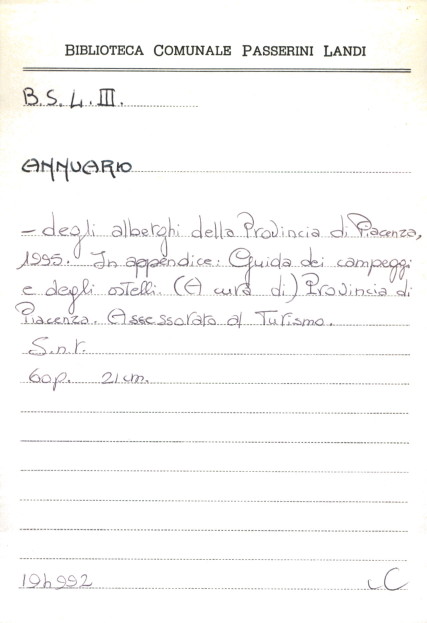 BIBLIOTECA COMUNALE PASSERINI LANDI
B.S.L.III.
ANNUARIO
- degli alberghi della Provincia di Piacenza,
1995. In appendice: Guida dei campeggi
e degli ostelli. (A cura di) Provincia di
Piacenza. Assessorato al Turismo.
S.n.t.
60p. 21cm.
194992 LC